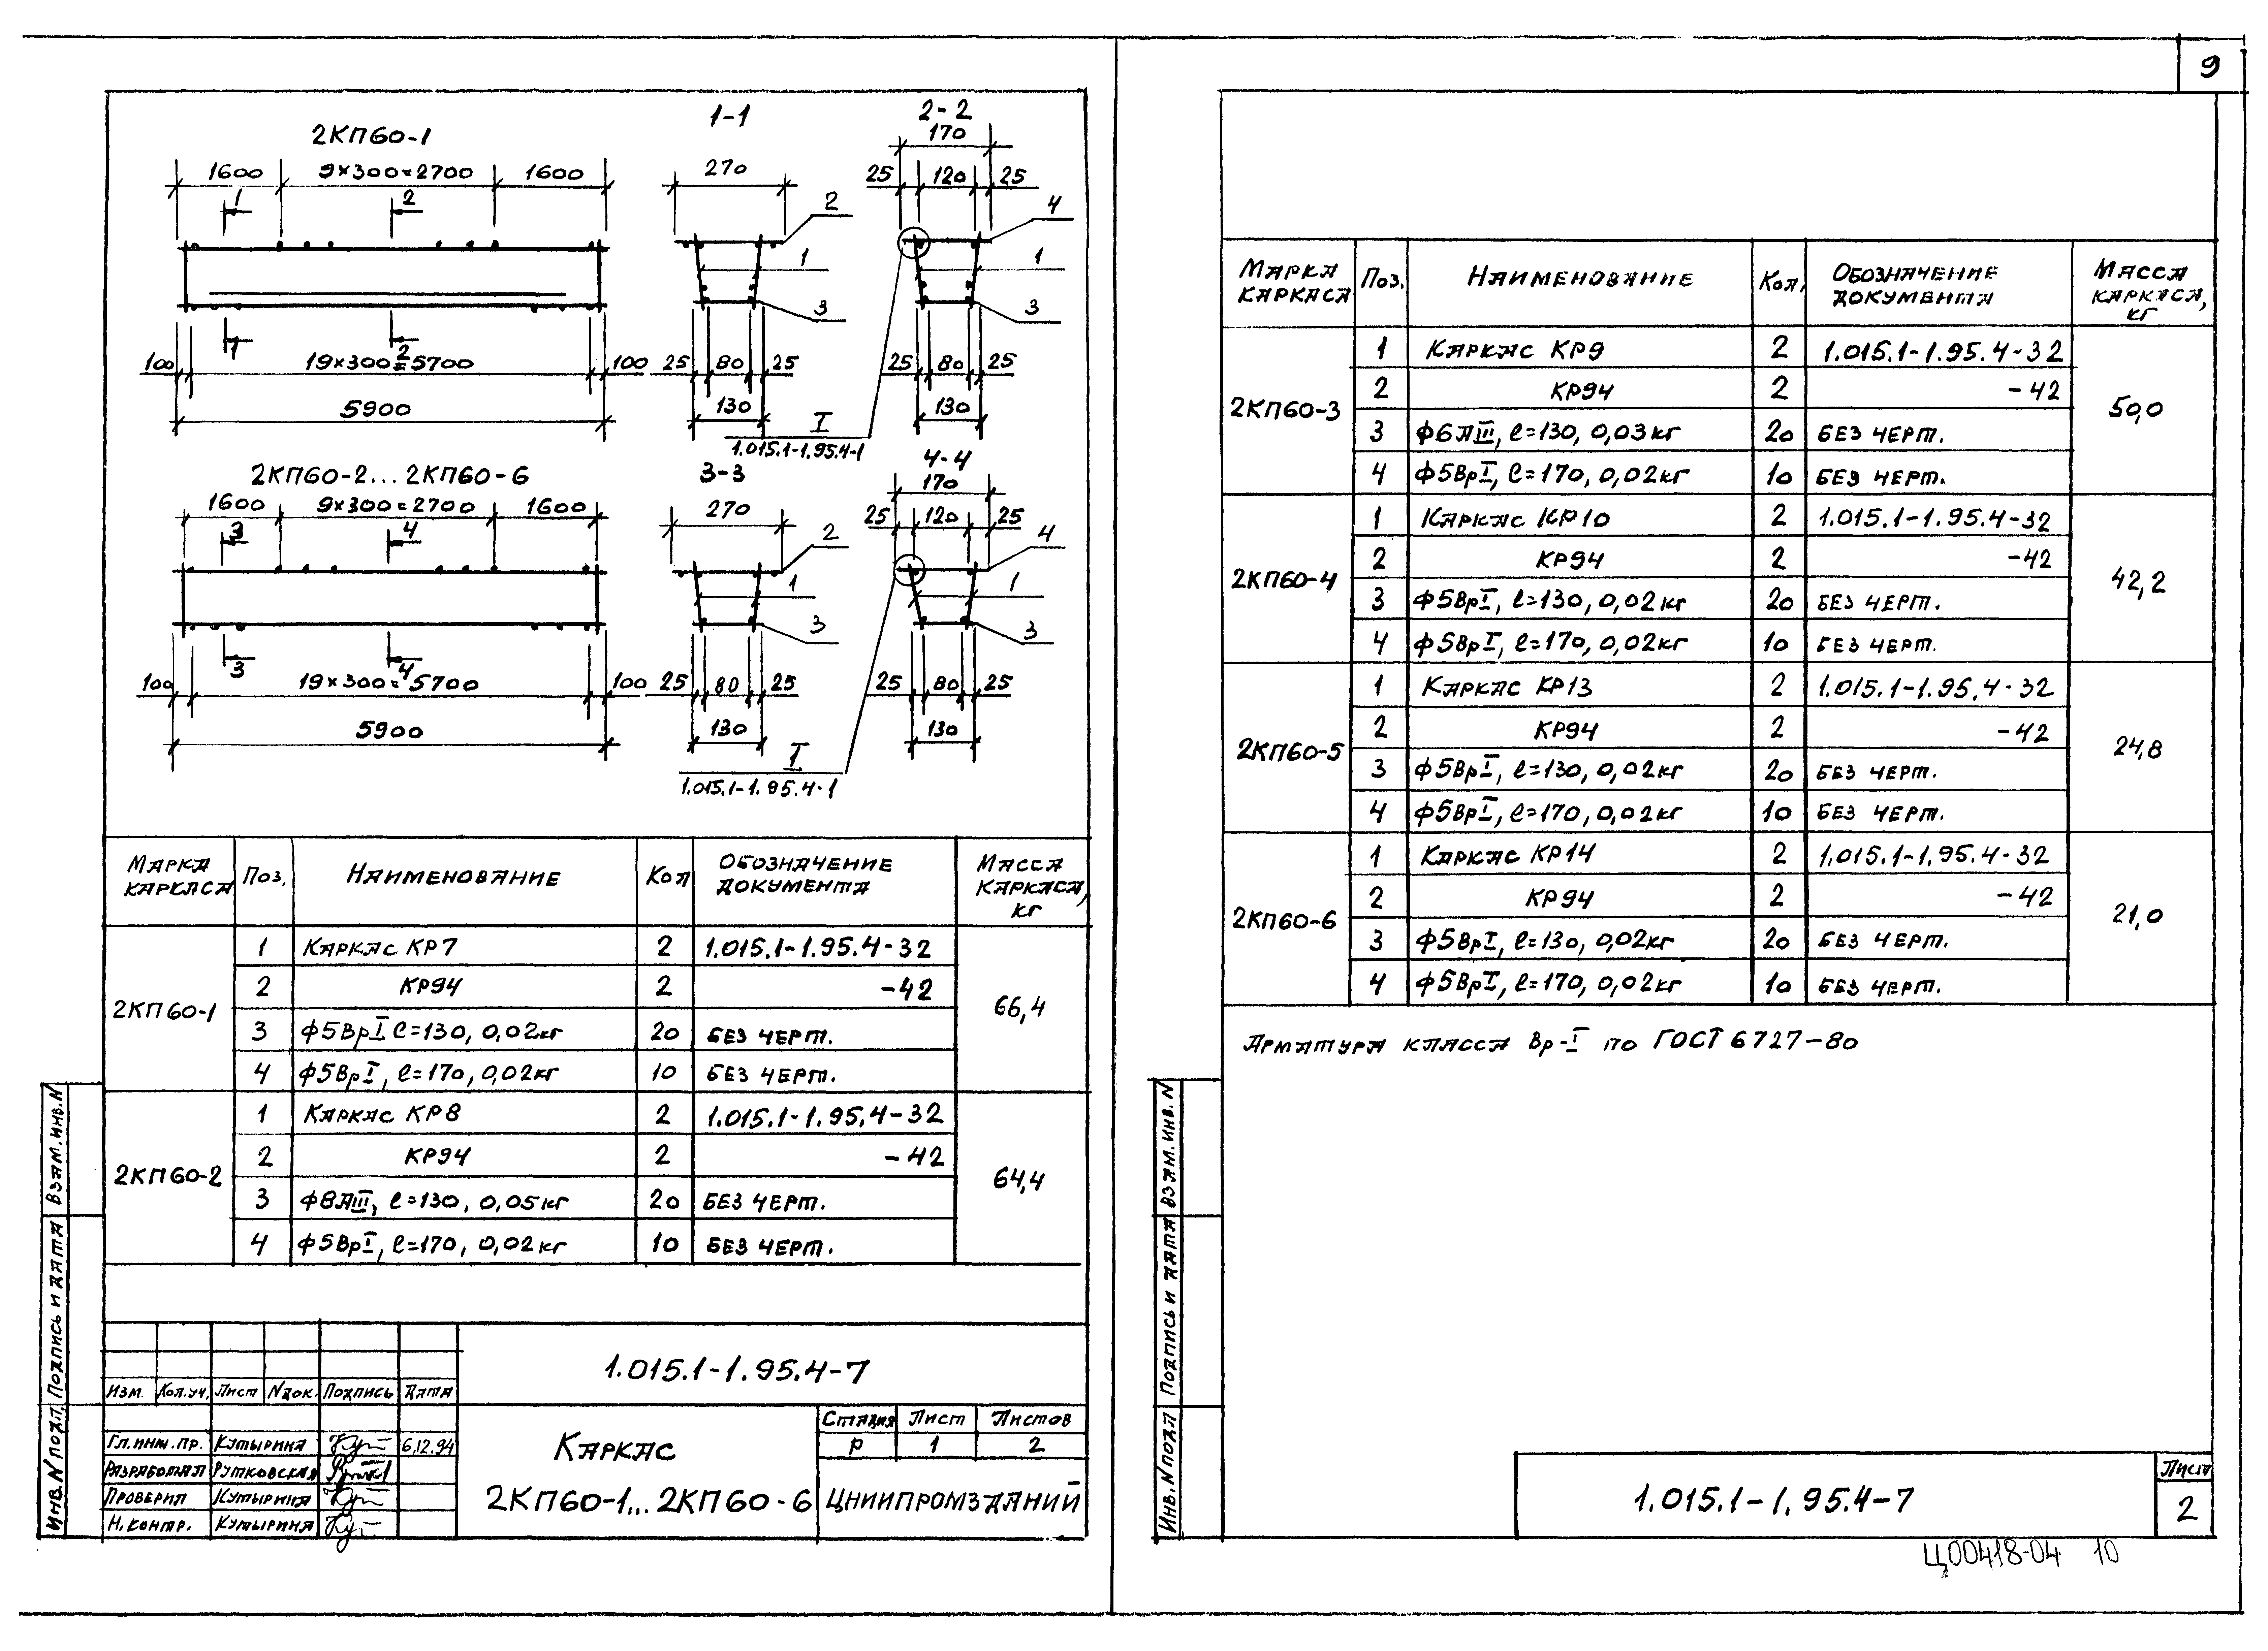 9
2КП60-1
1600 9×300=2700 1600
1 2
1 2
100 19×300=5700 100
5900
1-1
270
2
1
3
25 80 25
130
2-2
170
25 120 25
4
1
3
25 80 25
130
I
1.015.1-1.95.4-1
2КП60-2...2КП60-6
1600 9×300=2700 1600
3 4
3 4
100 19×300=5700 100
5900
3-3
270
2
1
3
25 80 25
130
4-4
170
25 120 25
4
1
3
25 80 25
130
I
1.015.1-1.95.4-1
Марка каркаса Поз. Наименование Кол Обозначение документа Масса каркаса, кг
2КП60-1 66,4
1 Каркас КР7 2 1.015.1-1.95.4-32
2 КР94 2 -42
3 Ф5ВрI ℓ=130, 0,02кг 20 без черт.
4 Ф5ВрI, ℓ=170, 0,02кг 10 без черт.
2КП60-2 64,4
1 Каркас КР8 2 1.015.1-1.95.4-32
2 КР94 2 -42
3 Ф8АIII, ℓ=130, 0,05кг 20 без черт.
4 Ф5ВрI, ℓ=170, 0,02кг 10 без черт.
1.015.1-1.95.4-7
Изм. Кол.уч. Лист Nдок. Подпись Дата
Гл.инж.пр. Кутырина 6.12.94
Разработал Рутковская
Проверил Кутырина
Н.контр. Кутырина
Каркас
2КП60-1...2КП60-6
Стадия Лист Листов
Р 1 2
ЦНИИПРОМЗДАНИЙ
Инв.N подл. Подпись и дата Взам.инв.N
Марка каркаса Поз. Наименование Кол. Обозначение документа Масса каркаса, кг
2КП60-3 50,0
1 Каркас КР9 2 1.015.1-1.95.4-32
2 КР94 2 -42
3 Ф6АIII, ℓ=130, 0,03кг 20 без черт.
4 Ф5ВрI, ℓ=170, 0,02кг 10 без черт.
2КП60-4 42,2
1 Каркас КР10 2 1.015.1-1.95.4-32
2 КР94 2 -42
3 Ф5ВрI, ℓ=130, 0,02кг 20 без черт.
4 Ф5ВрI, ℓ=170, 0,02кг 10 без черт.
2КП60-5 24,8
1 Каркас КР13 2 1.015.1-1.95.4-32
2 КР94 2 -42
3 Ф5ВрI, ℓ=130, 0,02кг 20 без черт.
4 Ф5ВрI, ℓ=170, 0,02кг 10 без черт.
2КП60-6 21,0
1 Каркас КР14 2 1.015.1-1.95.4-32
2 КР94 2 -42
3 Ф5ВрI, ℓ=130, 0,02кг 20 без черт.
4 Ф5ВрI, ℓ=170, 0,02кг 10 без черт.
Арматура класса Вр-I по ГОСТ 6727-80
Инв.N подл Подпись и дата Взам.инв.N
1.015.1-1.95.4-7
Лист
2
Ц00418-04 10